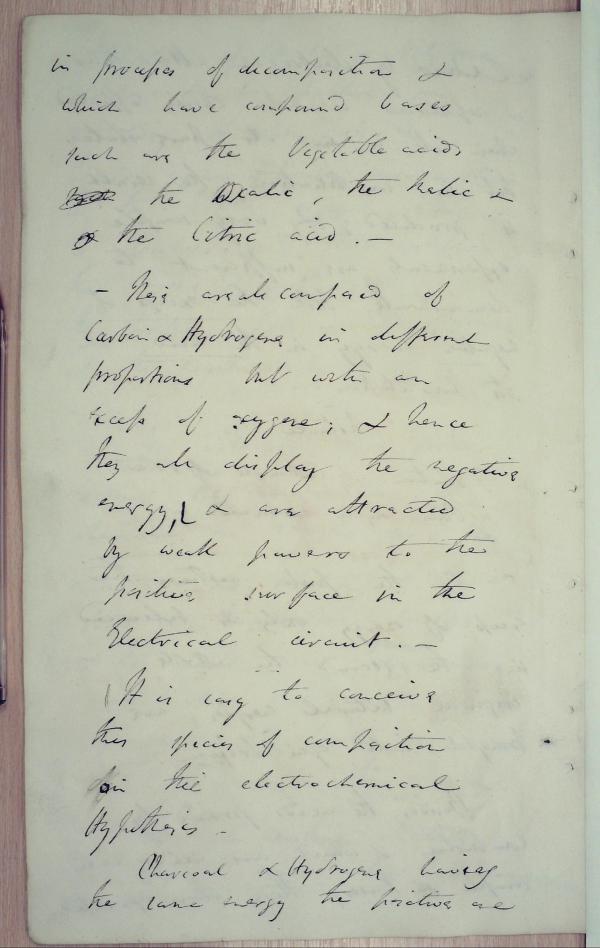 in process of decomposition &
which have compound bases
such are the Vegetable acids
the Oxalic, the Malic &
the Citric acid. —
— These are all composed of
Carbon & Hydrogene in different
proportions but with an
excess of oxygene; & hence
they all display the negative
energy, & are attracted
by weak powers to the
positive surface in the
Electrical circuit. —
It is easy to conceive
this species of composition
in the electrochemical
Hypothesis —
Charcoal & Hydrogene having
the same energy the positive are